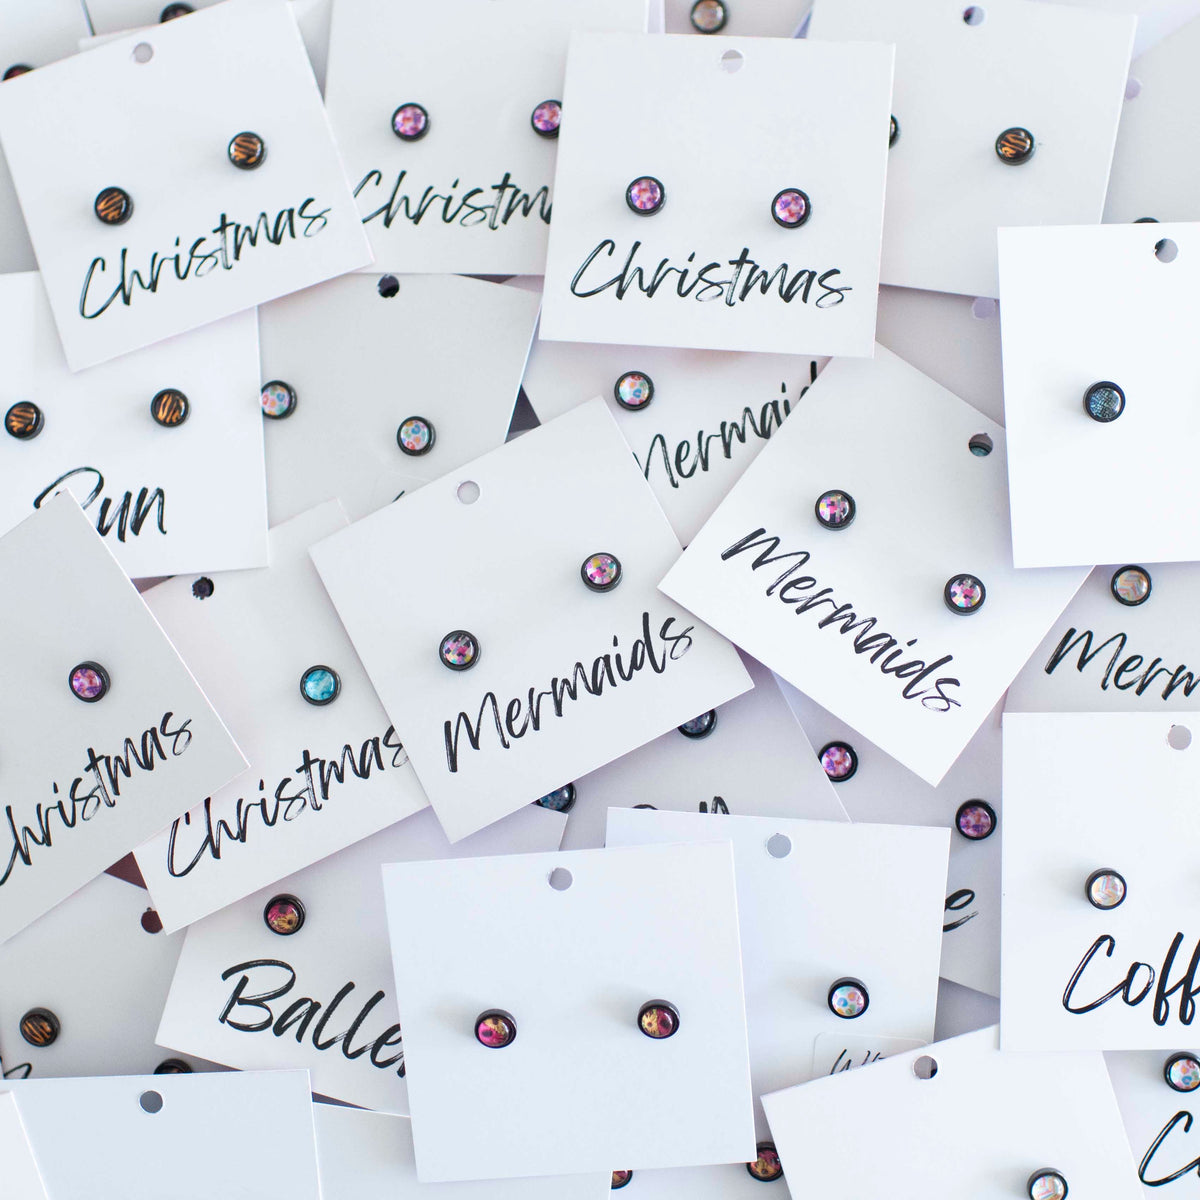 Christmas
Christm
Christmas
Mermaid
Run
Mermaids
Mermaids
Merm
Christmas
Christmas
Coff
Balle